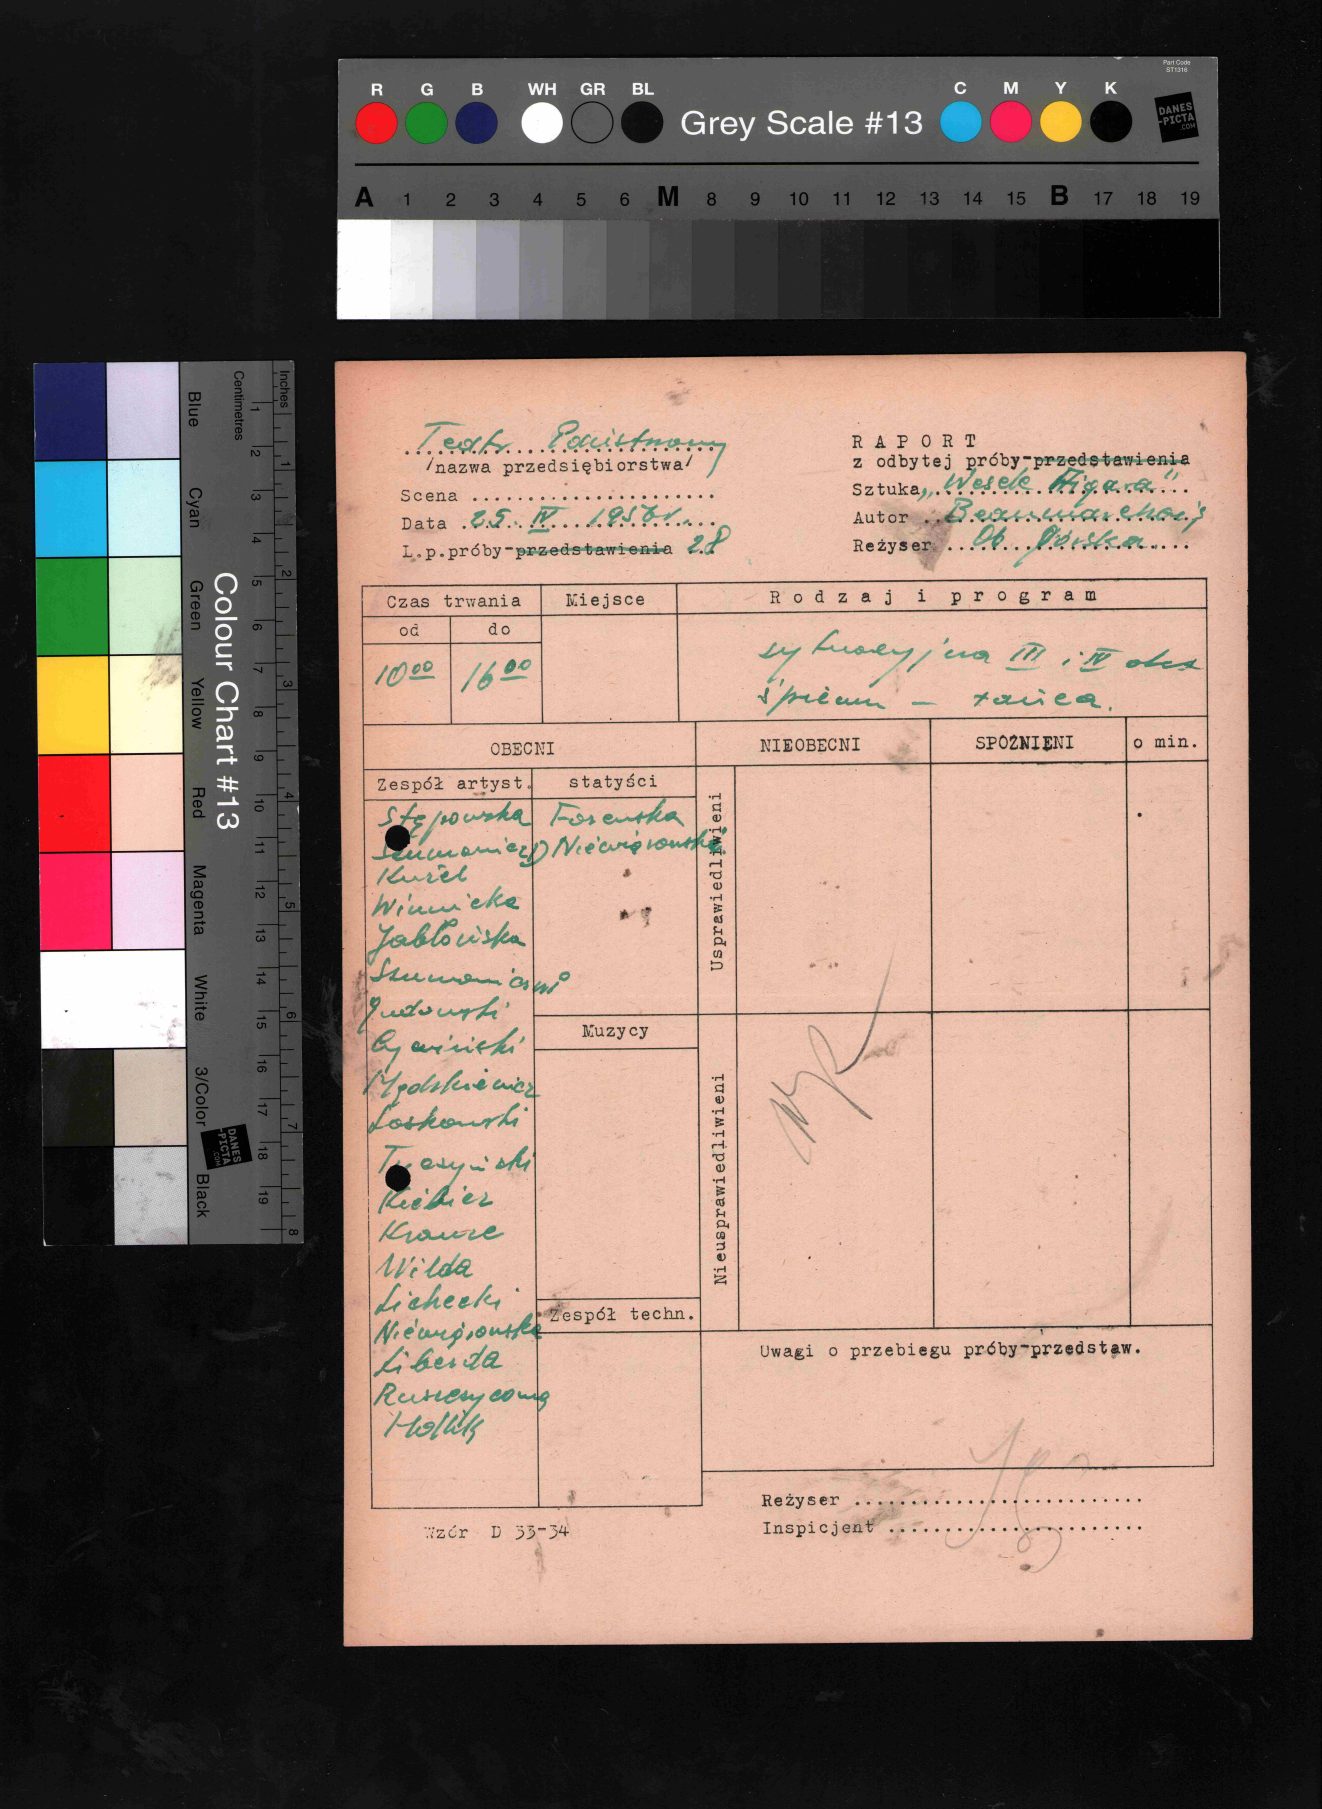 Part Code
ST1316
R G B WH GR BL Grey Scale #13 C M Y K
DANES
-PICTA
.COM
A 1 2 3 4 5 6 M 8 9 10 11 12 13 14 15 B 17 18 19
Colour Chart #13
Blue Cyan Green Yellow Red Magenta White 3/Color Black
Centimetres
1 2 3 4 5 6 7 8 9 10 11 12 13 14 15 16 17 18 19
Inches
1 2 3 4 5 6 7 8
DANES
-PICTA
.COM
Teatr Państwowy
/nazwa przedsiębiorstwa/
Scena
Data 25. IV 195
L.p.próby-przedstawienia 28
RAPORT
z odbytej próby-przedstawienia
Sztuka „Wesele Figara"
Autor Beaumarchais
Reżyser Górska
Czas trwania Miejsce Rodzaj i program
od do
10 00 16 00
sytuacyjna III i IV
śpiewu — tańca.
OBECNI NIEOBECNI SPÓŹNIENI o min.
Zespół artyst. statyści
Usprawiedliwieni
Stępowska
Niewęgłowska
Kuźel
Winnicka
Jabłońska
Cywiński
Laskowski
Krauze
Wilda
Lichecki
Niewęgłowska
Liberda
Muzycy
Nieusprawiedliwieni
Zespół techn.
Uwagi o przebiegu próby-przedstaw.
Reżyser
Inspicjent
Wzór D 33-34